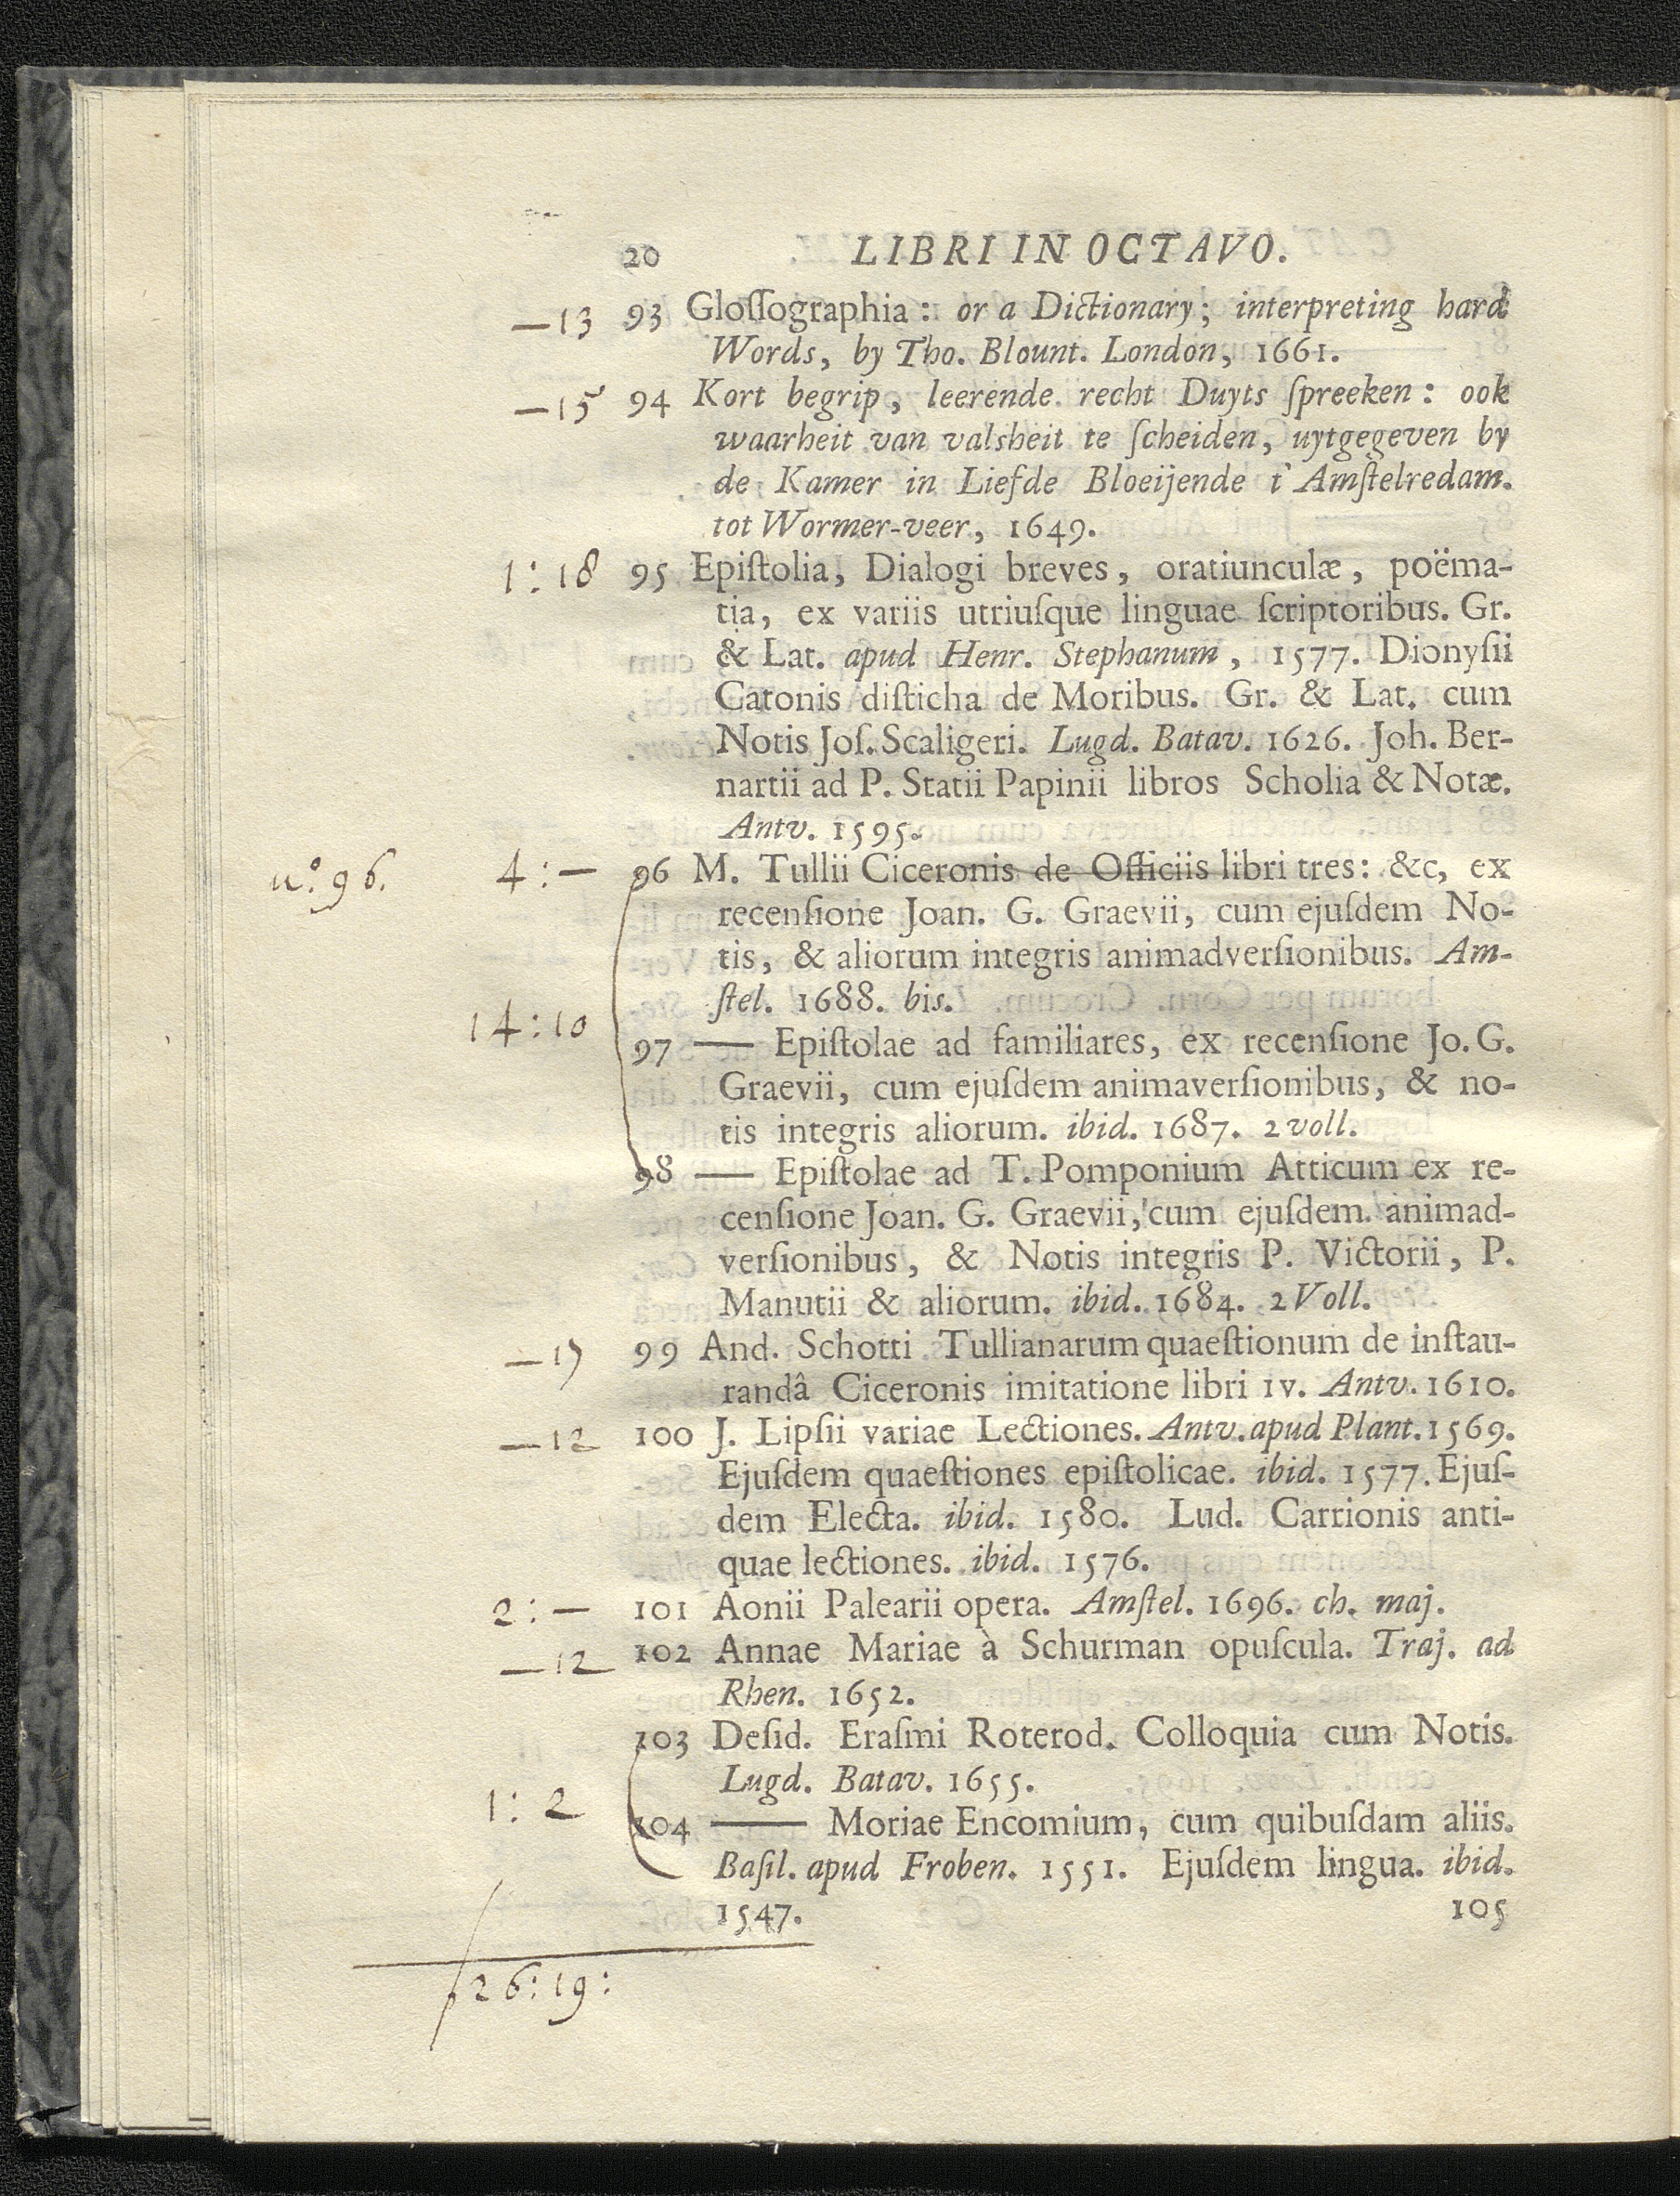 20 LIBRI IN OCTAVO.
—13 93 Gloſſographia: or a Dictionary; interpreting hard
Words, by Tho. Blount. London, 1661.
—15 94 Kort begrip, leerende recht Duyts ſpreeken: ook
waarheit van valsheit te ſcheiden, uytgegeven by
de Kamer in Liefde Bloeijende t' Amſtelredam.
tot Wormer-veer, 1649.
1:18 95 Epiſtolia, Dialogi breves, oratiunculæ, poëma-
tia, ex variis utriuſque linguae ſcriptoribus. Gr.
& Lat. apud Henr. Stephanum, 1577. Dionyſii
Catonis diſticha de Moribus. Gr. & Lat. cum
Notis Joſ. Scaligeri. Lugd. Batav. 1626. Joh. Ber-
nartii ad P. Statii Papinii libros Scholia & Notæ.
Antv. 1595.
n.o 96. 4:— 96 M. Tullii Ciceronis de Officiis libri tres: &c, ex
recenſione Joan. G. Graevii, cum ejuſdem No-
tis, & aliorum integris animadverſionibus. Am-
ſtel. 1688. bis.
14:10
97 —— Epiſtolae ad familiares, ex recenſione Jo. G.
Graevii, cum ejuſdem animaverſionibus, & no-
tis integris aliorum. ibid. 1687. 2 voll.
98 —— Epiſtolae ad T. Pomponium Atticum ex re-
cenſione Joan. G. Graevii, cum ejuſdem animad-
verſionibus, & Notis integris P. Victorii, P.
Manutii & aliorum. ibid. 1684. 2 Voll.
99 And. Schotti Tullianarum quaeſtionum de inſtau-
randâ Ciceronis imitatione libri IV. Antv. 1610.
—12 100 J. Lipſii variae Lectiones. Antv. apud Plant. 1569.
Ejuſdem quaeſtiones epiſtolicae. ibid. 1577. Ejuſ-
dem Electa. ibid. 1580. Lud. Carrionis anti-
quae lectiones. ibid. 1576.
2:— 101 Aonii Palearii opera. Amſtel. 1696. ch. maj.
—12 102 Annae Mariae à Schurman opuſcula. Traj. ad
Rhen. 1652.
103 Deſid. Eraſmi Roterod. Colloquia cum Notis.
Lugd. Batav. 1655.
1:2
104 —— Moriae Encomium, cum quibuſdam aliis.
Baſil. apud Froben. 1551. Ejuſdem lingua. ibid.
1547. 105
ƒ26:19: